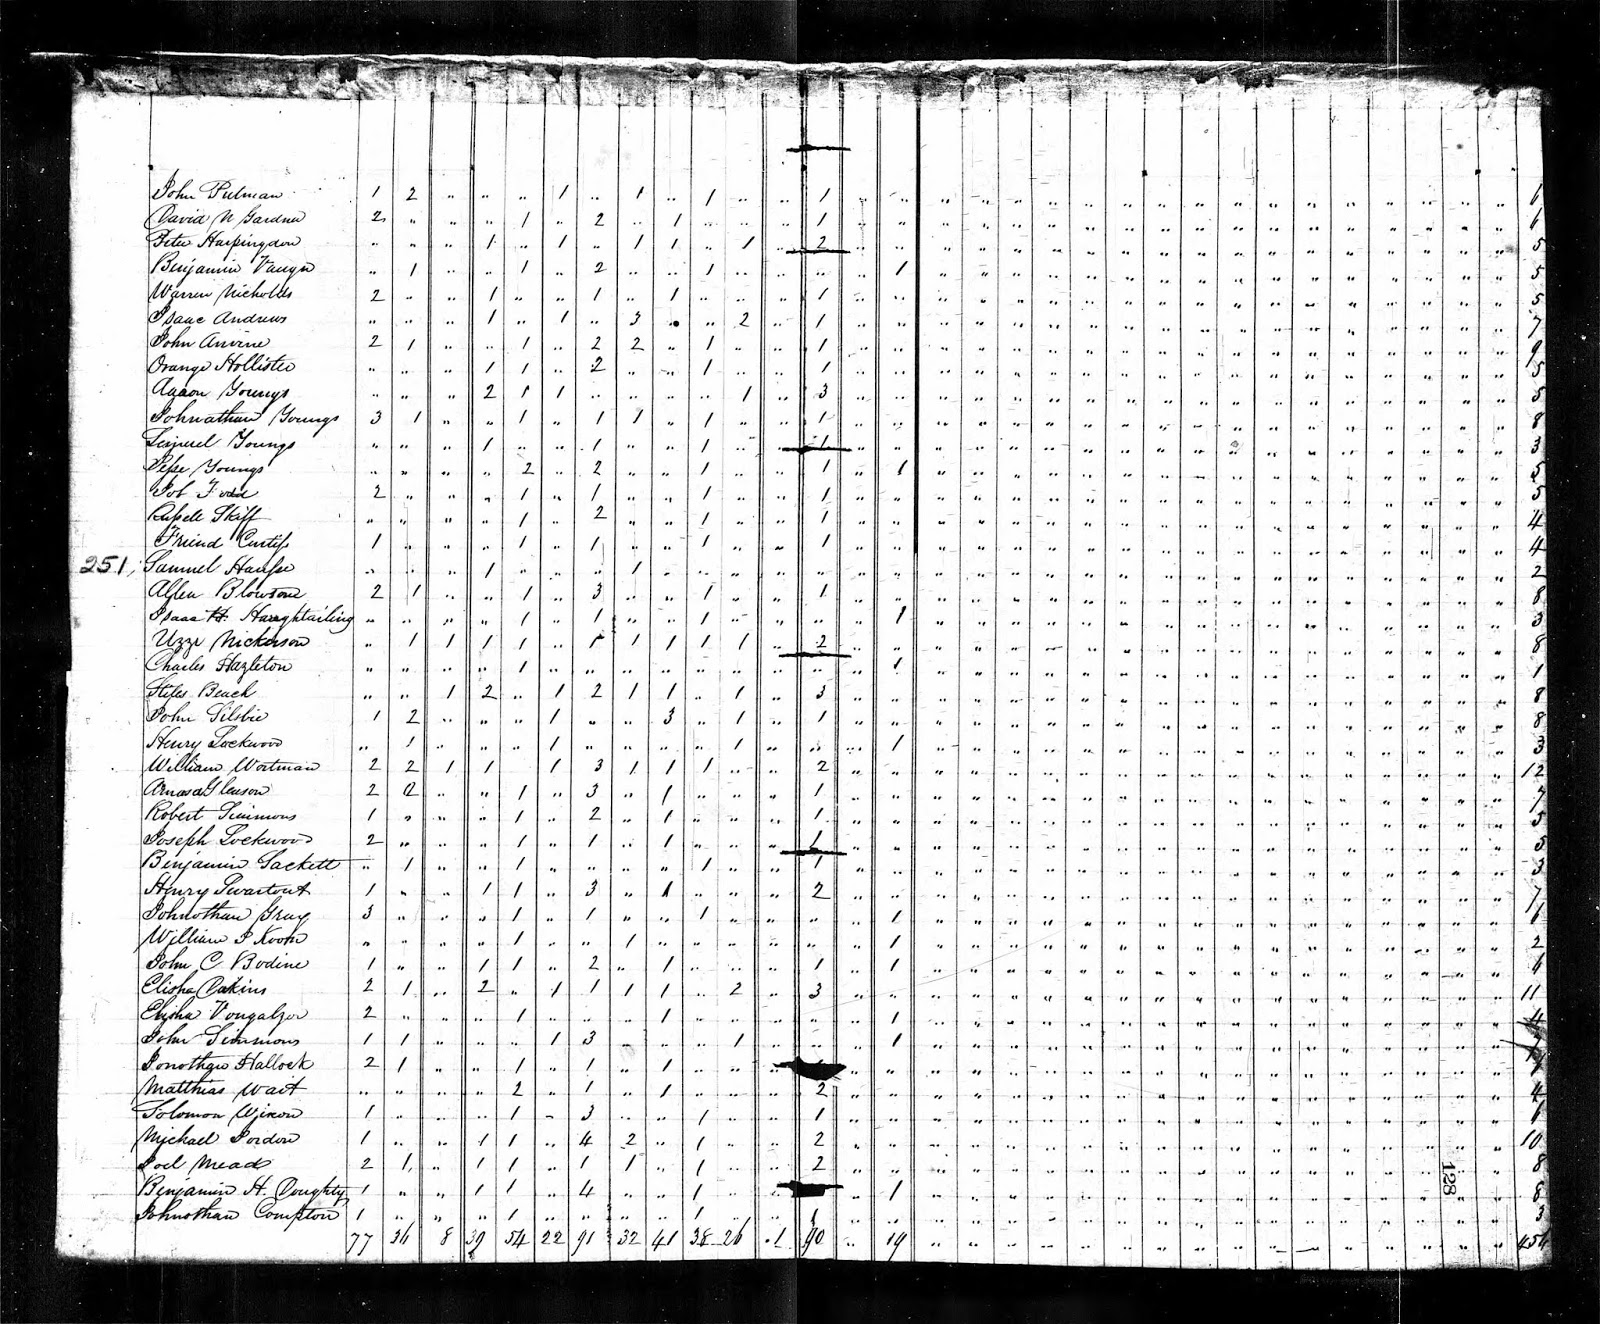 John Pulman 1 2 " " " 1 " 1 " 1 " " 1 " " 6
David N Gardner 2 " " " 1 " 2 " 1 " " " 1 " " 6
Peter Harpingdon " " " 1 " 1 " 1 1 " 1 " 2 " " 5
Benjamin Vaugn " 1 " " 1 " 2 " " 1 " " " " 1 5
Warren Nicholds 2 " " 1 " " 1 " 1 " " " 1 " " 5
Isaac Andrews " " " 1 " 1 " 3 " " 2 " 1 " " 7
John Arvine 2 1 " " 1 " 2 2 " 1 " " 1 " " 9
Orange Hollister " " " 1 1 " 2 " " 1 " " 1 " " 5
Aaron Youngs " " " 2 1 1 " " " " 1 " 3 " " 5
Johnathan Youngs 3 1 " " 1 " 1 1 " 1 " " 1 " " 8
Lemuel Youngs " " " 1 " " 1 " " 1 " " 1 " " 3
Jesse Youngs " " " " 2 " 2 " " 1 " " 1 " 1 5
Job Ford 2 " " " 1 " 1 " " 1 " " 1 " " 5
Russell Skiff " " " " 1 " 2 " " 1 " " 1 " " 4
Friend Curtiss 1 " " " 1 " 1 " " 1 " " 1 " " 4
251, Samuel Hause " " " 1 " " " 1 " " " " " " " 2
Allen Blowson 2 1 " " 1 " 3 " " 1 " " 1 " " 8
Isaac H. Haughtailing " " " " 1 " 1 " " 1 " " " " 1 3
Uzzi Nickerson " 1 1 1 1 " 1 1 1 1 1 " 2 " " 8
Charles Hazleton " " " " 1 " " " " " " " " " 1 1
Stiles Beach " " 1 2 " 1 2 1 1 " 1 " 3 " " 8
John Silsbie 1 2 " " " 1 " " 3 " 1 " 1 " " 8
Henry Lockwood " 1 " " " 1 " " " " 1 " " " 1 3
William Wortman 2 2 1 1 " 1 3 1 1 1 " " 2 " " 12
Amasa Gleason 2 " " 1 " 3 " 1 " " " 1 " " 7
Robert Simmons 1 " " " 1 " 2 " 1 " " " 1 " " 5
Joseph Lockwood 2 " " " 1 " 1 " 1 " " " 1 " " 5
Benjamin Sackett " 1 " " 1 " " " " 1 " " 1 " " 3
Henry Swartout 1 " " 1 1 " 3 " 1 " " " 2 " " 7
Johnothan Gray 3 " " " 1 " 1 " " 1 " " " " 1 6
William J Koon " " " " 1 " " 1 " " " " " " 1 2
John C Bodine 1 " " 1 1 " 2 " 1 " " " 1 " 1 6
Elisha Dakins 2 1 " 2 " 1 1 1 1 " 2 " 3 " " 11
Elisha Vongalzor 2 " " " 1 " " " 1 " " " " " 1 4
John Simmons 1 1 " " " 1 3 " " " 1 " " " 1 7
Jonothan Hallock 2 1 " " 1 " 1 " 1 " " "
Matthias Wait " " " " 2 " 1 " 1 " " " 2 " " 4
Solomon Wixon 1 " " " 1 " 3 " " 1 " " 1 " " 6
Michael Jordon 1 " " 1 1 " 4 2 " 1 " " 2 " " 10
Joel Meads 2 1 " 1 1 " 1 1 " 1 " " 2 " " 8
Benjamin H. Doughty 1 " " 1 1 " 4 " " 1 " " " 1 8
Johnothan Compton 1 " " " 1 " " " " 1 " " 1 " " 3
77 36 8 39 54 22 91 32 41 38 26 1 90 " 19 454
128